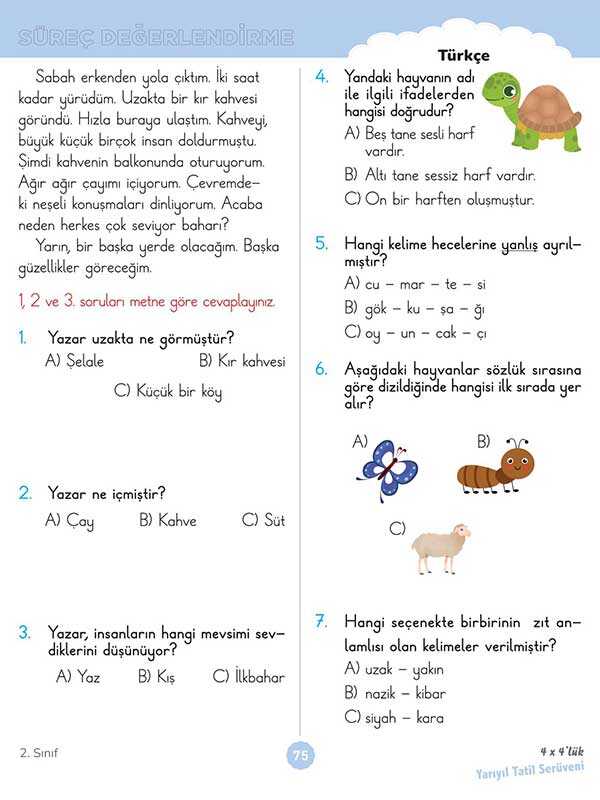 SÜREÇ DEĞERLENDİRME
Türkçe
Sabah erkenden yola çıktım. İki saat
kadar yürüdüm. Uzakta bir kır kahvesi
göründü. Hızla buraya ulaştım. Kahveyi,
büyük küçük birçok insan doldurmuştu.
Şimdi kahvenin balkonunda oturuyorum.
Ağır ağır çayımı içiyorum. Çevremde-
ki neşeli konuşmaları dinliyorum. Acaba
neden herkes çok seviyor baharı?
Yarın, bir başka yerde olacağım. Başka
güzellikler göreceğim.
1, 2 ve 3. soruları metne göre cevaplayınız.
1. Yazar uzakta ne görmüştür?
A) Şelale B) Kır kahvesi
C) Küçük bir köy
2. Yazar ne içmiştir?
A) Çay B) Kahve C) Süt
3. Yazar, insanların hangi mevsimi sev-
diklerini düşünüyor?
A) Yaz B) Kış C) İlkbahar
4. Yandaki hayvanın adı
ile ilgili ifadelerden
hangisi doğrudur?
A) Beş tane sesli harf
vardır.
B) Altı tane sessiz harf vardır.
C) On bir harften oluşmuştur.
5. Hangi kelime hecelerine yanlış ayrıl-
mıştır?
A) cu - mar - te - si
B) gök - ku - şa - ğı
C) oy - un - cak - çı
6. Aşağıdaki hayvanlar sözlük sırasına
göre dizildiğinde hangisi ilk sırada yer
alır?
A) B)
C)
7. Hangi seçenekte birbirinin zıt an-
lamlısı olan kelimeler verilmiştir?
A) uzak - yakın
B) nazik - kibar
C) siyah - kara
2. Sınıf
75
4 x 4'lük
Yarıyıl Tatil Serüveni